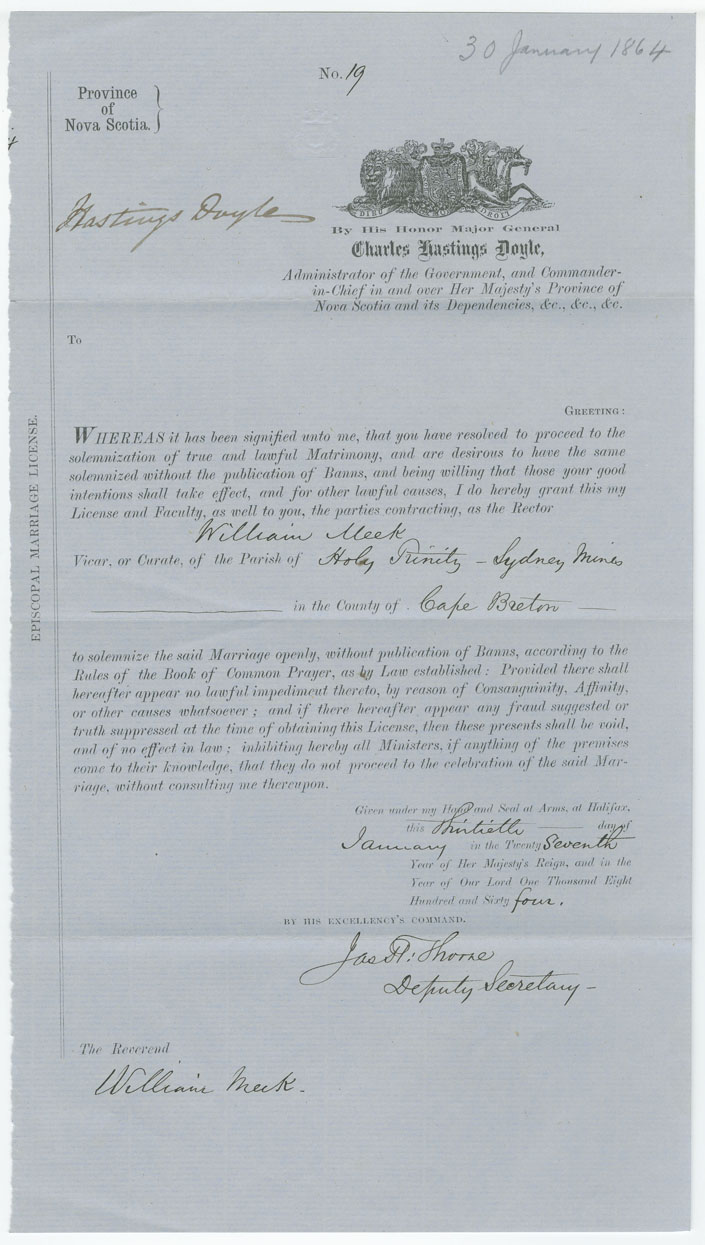 30 January 1864
No. 19
Province
of
Nova Scotia.
Hastings Doyle
DIEU ET MON DROIT
By His Honor Major General
Charles Hastings Doyle,
Administrator of the Government, and Commander-
in-Chief in and over Her Majesty's Province of
Nova Scotia and its Dependencies, &c., &c., &c.
To
GREETING:
WHEREAS it has been signified unto me, that you have resolved to proceed to the
solemnization of true and lawful Matrimony, and are desirous to have the same
solemnized without the publication of Banns, and being willing that those your good
intentions shall take effect, and for other lawful causes, I do hereby grant this my
License and Faculty, as well to you, the parties contracting, as the Rector
William Meek
Vicar, or Curate, of the Parish of Holy Trinity - Sydney Mines
in the County of Cape Breton
to solemnize the said Marriage openly, without publication of Banns, according to the
Rules of the Book of Common Prayer, as by Law established: Provided there shall
hereafter appear no lawful impediment thereto, by reason of Consanguinity, Affinity,
or other causes whatsoever; and if there hereafter appear any fraud suggested or
truth suppressed at the time of obtaining this License, then these presents shall be void,
and of no effect in law; inhibiting hereby all Ministers, if anything of the premises
come to their knowledge, that they do not proceed to the celebration of the said Mar-
riage, without consulting me thereupon.
Given under my Hand and Seal at Arms, at Halifax,
this Thirtieth day of
January in the Twenty Seventh
Year of Her Majesty's Reign, and in the
Year of Our Lord One Thousand Eight
Hundred and Sixty four.
BY HIS EXCELLENCY'S COMMAND.
Jas H: Thorne
Deputy Secretary -
The Reverend
William Meek.
EPISCOPAL MARRIAGE LICENSE.